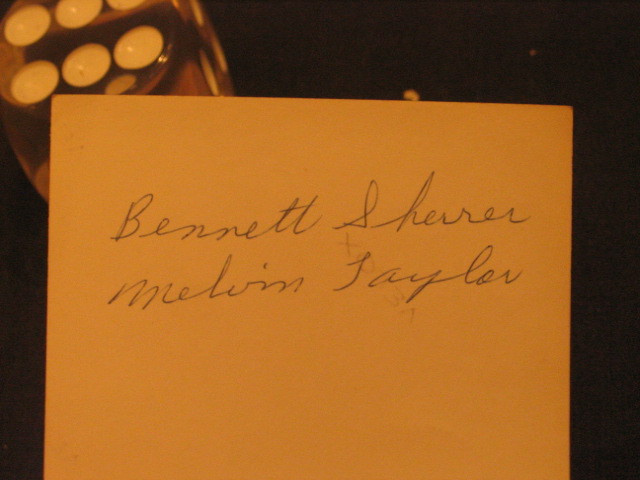 Bennett Sherrer
Melvin Taylor